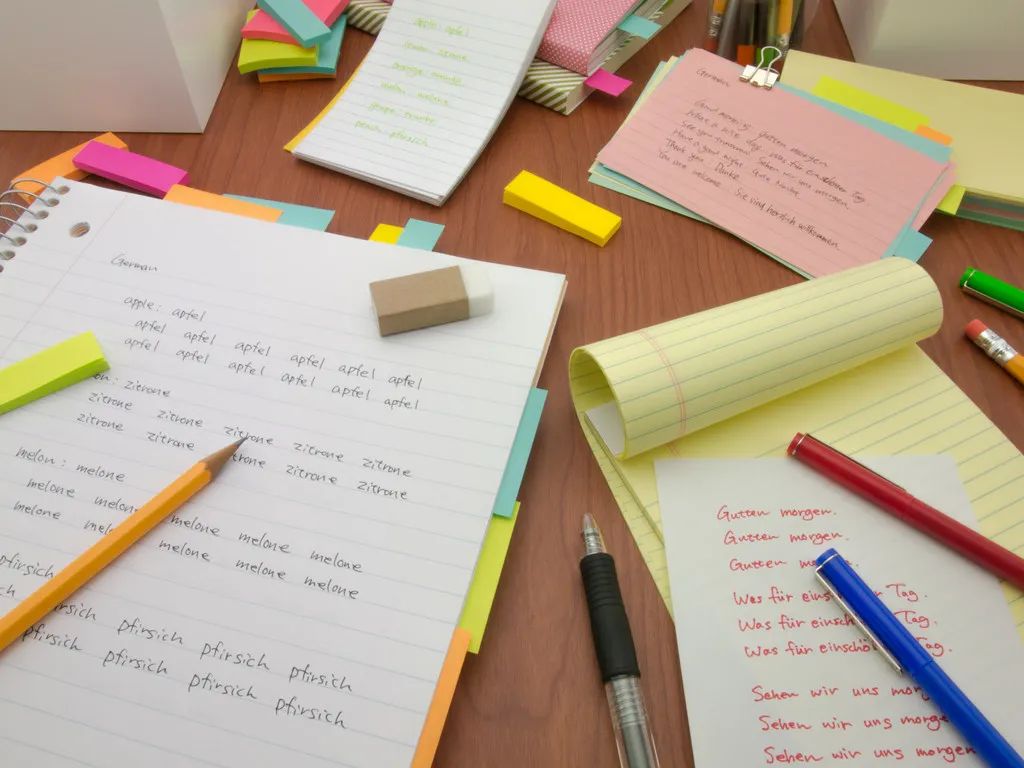 apple : apfel
peach pfirsich
German
Good morning Gutten morgen
What a nice day Was für einschöner Tag
See you tomorrow Sehen wir uns morgen
Have a good night Gute Nacht
Thank you Danke
You are welcome Sie sind herzlich willkommen
German
apple : apfel
apfel apfel apfel apfel apfel
apfel apfel apfel apfel apfel apfel
zitrone
zitrone zitrone zitrone zitrone zitrone
zitrone zitrone zitrone zitrone
melon : melone
melone melone melone melone
melone melone melone melone
pfirsich
pfirsich pfirsich pfirsich
pfirsich pfirsich pfirsich pfirsich
Gutten morgen.
Gutten morgen.
Gutten
Was für Tag.
Was für Tag.
Was für Tag.
Sehen wir uns
Sehen wir uns
Sehen wir uns morgen